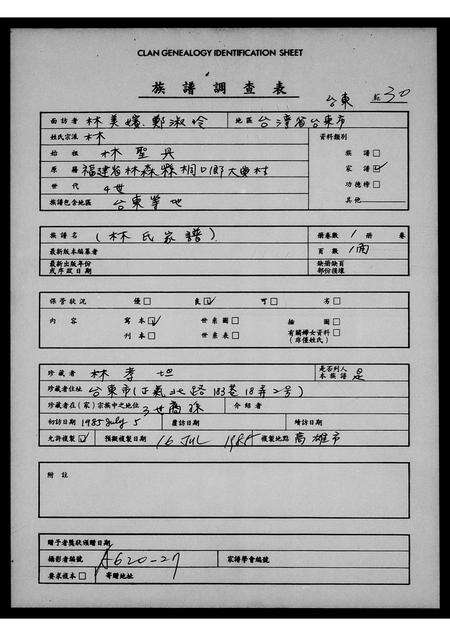 CLAN GENEALOGY IDENTIFICATION SHEET
族譜調查表
台東 30
面訪者 林美嬪、鄭淑玲 地區 台灣省台東市
姓氏宗派 林 資料類別
始祖 林聖丹 族譜
原籍 福建省林森縣 家譜 ✓
世代 4世 功德榜
族譜包含地區 台東等地 其他
族譜名 (林氏家譜) 冊卷數 1 冊 卷
最新版本編纂者 頁數
最新出版年份或序跋日期 缺冊缺頁部份後壞
保管狀況 優 良 ✓ 可 劣
內容 寫本 ✓ 世系圖 插圖
刊本 世系表 有關婦女資料(非僅姓氏)
珍藏者 林孝坦 是否列入本族譜 是
珍藏者住址 台東市(正氣北路183巷18弄2號)
珍藏者在(家)宗族中之地位 3世裔孫 介紹者
初訪日期 1985 July 5 覆訪日期 增訪日期
允許複製 ✓ 預擬複製日期 16 JUL 複製地點 高雄市
附註
贈予者獎狀頒贈日期
攝影者編號 A620-27 家譜學會編號
要求複本 寄贈地址